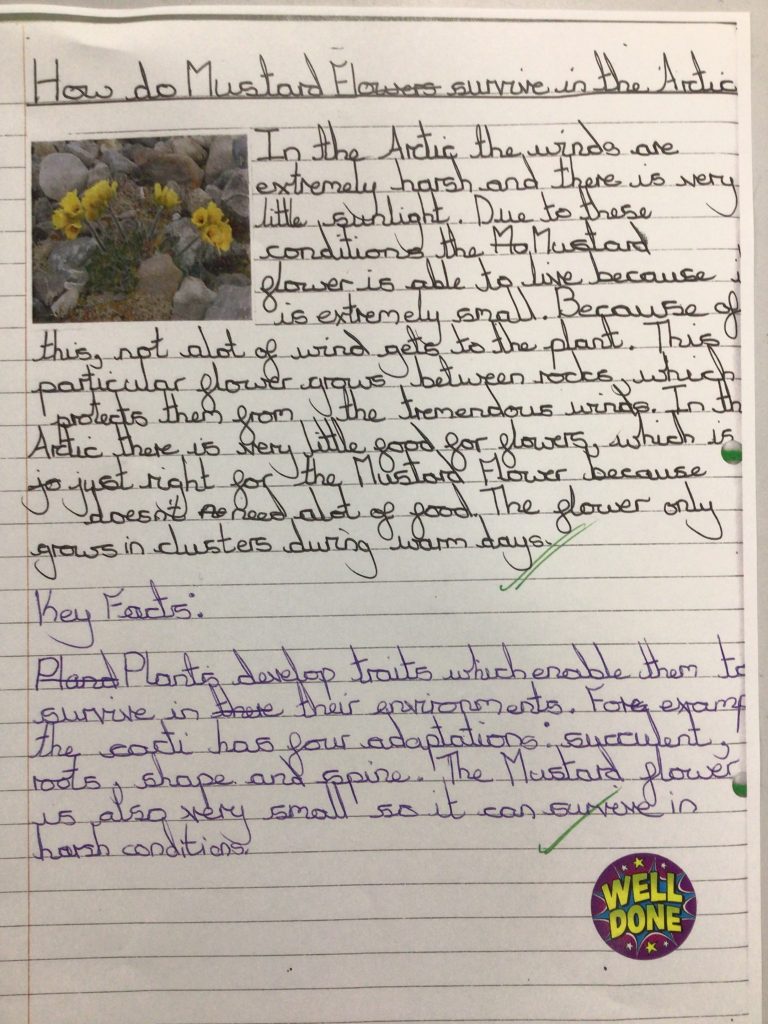 How do Mustard Flowers survive in the Arctic
In the Arctic the winds are
extremely harsh and there is very
little sunlight. Due to these
conditions the Mo Mustard
flower is able to live because i
is extremely small. Because of
this, not alot of wind gets to the plant. This
particular flower grows between rocks, which
protects them from the tremendous winds. In th
Arctic there is very little food for flowers, which is
jo just right for the Mustard Flower because
doesn't need alot of food. The flower only
grows in clusters during warm days.
Key Facts:
Pland Plants develop traits which enable them to
survive in there their environments. For examp
the cacti has four adaptations: succulent,
roots, shape and spine. The Mustard flower
is also very small so it can surveve in
harsh conditions.
WELL
DONE